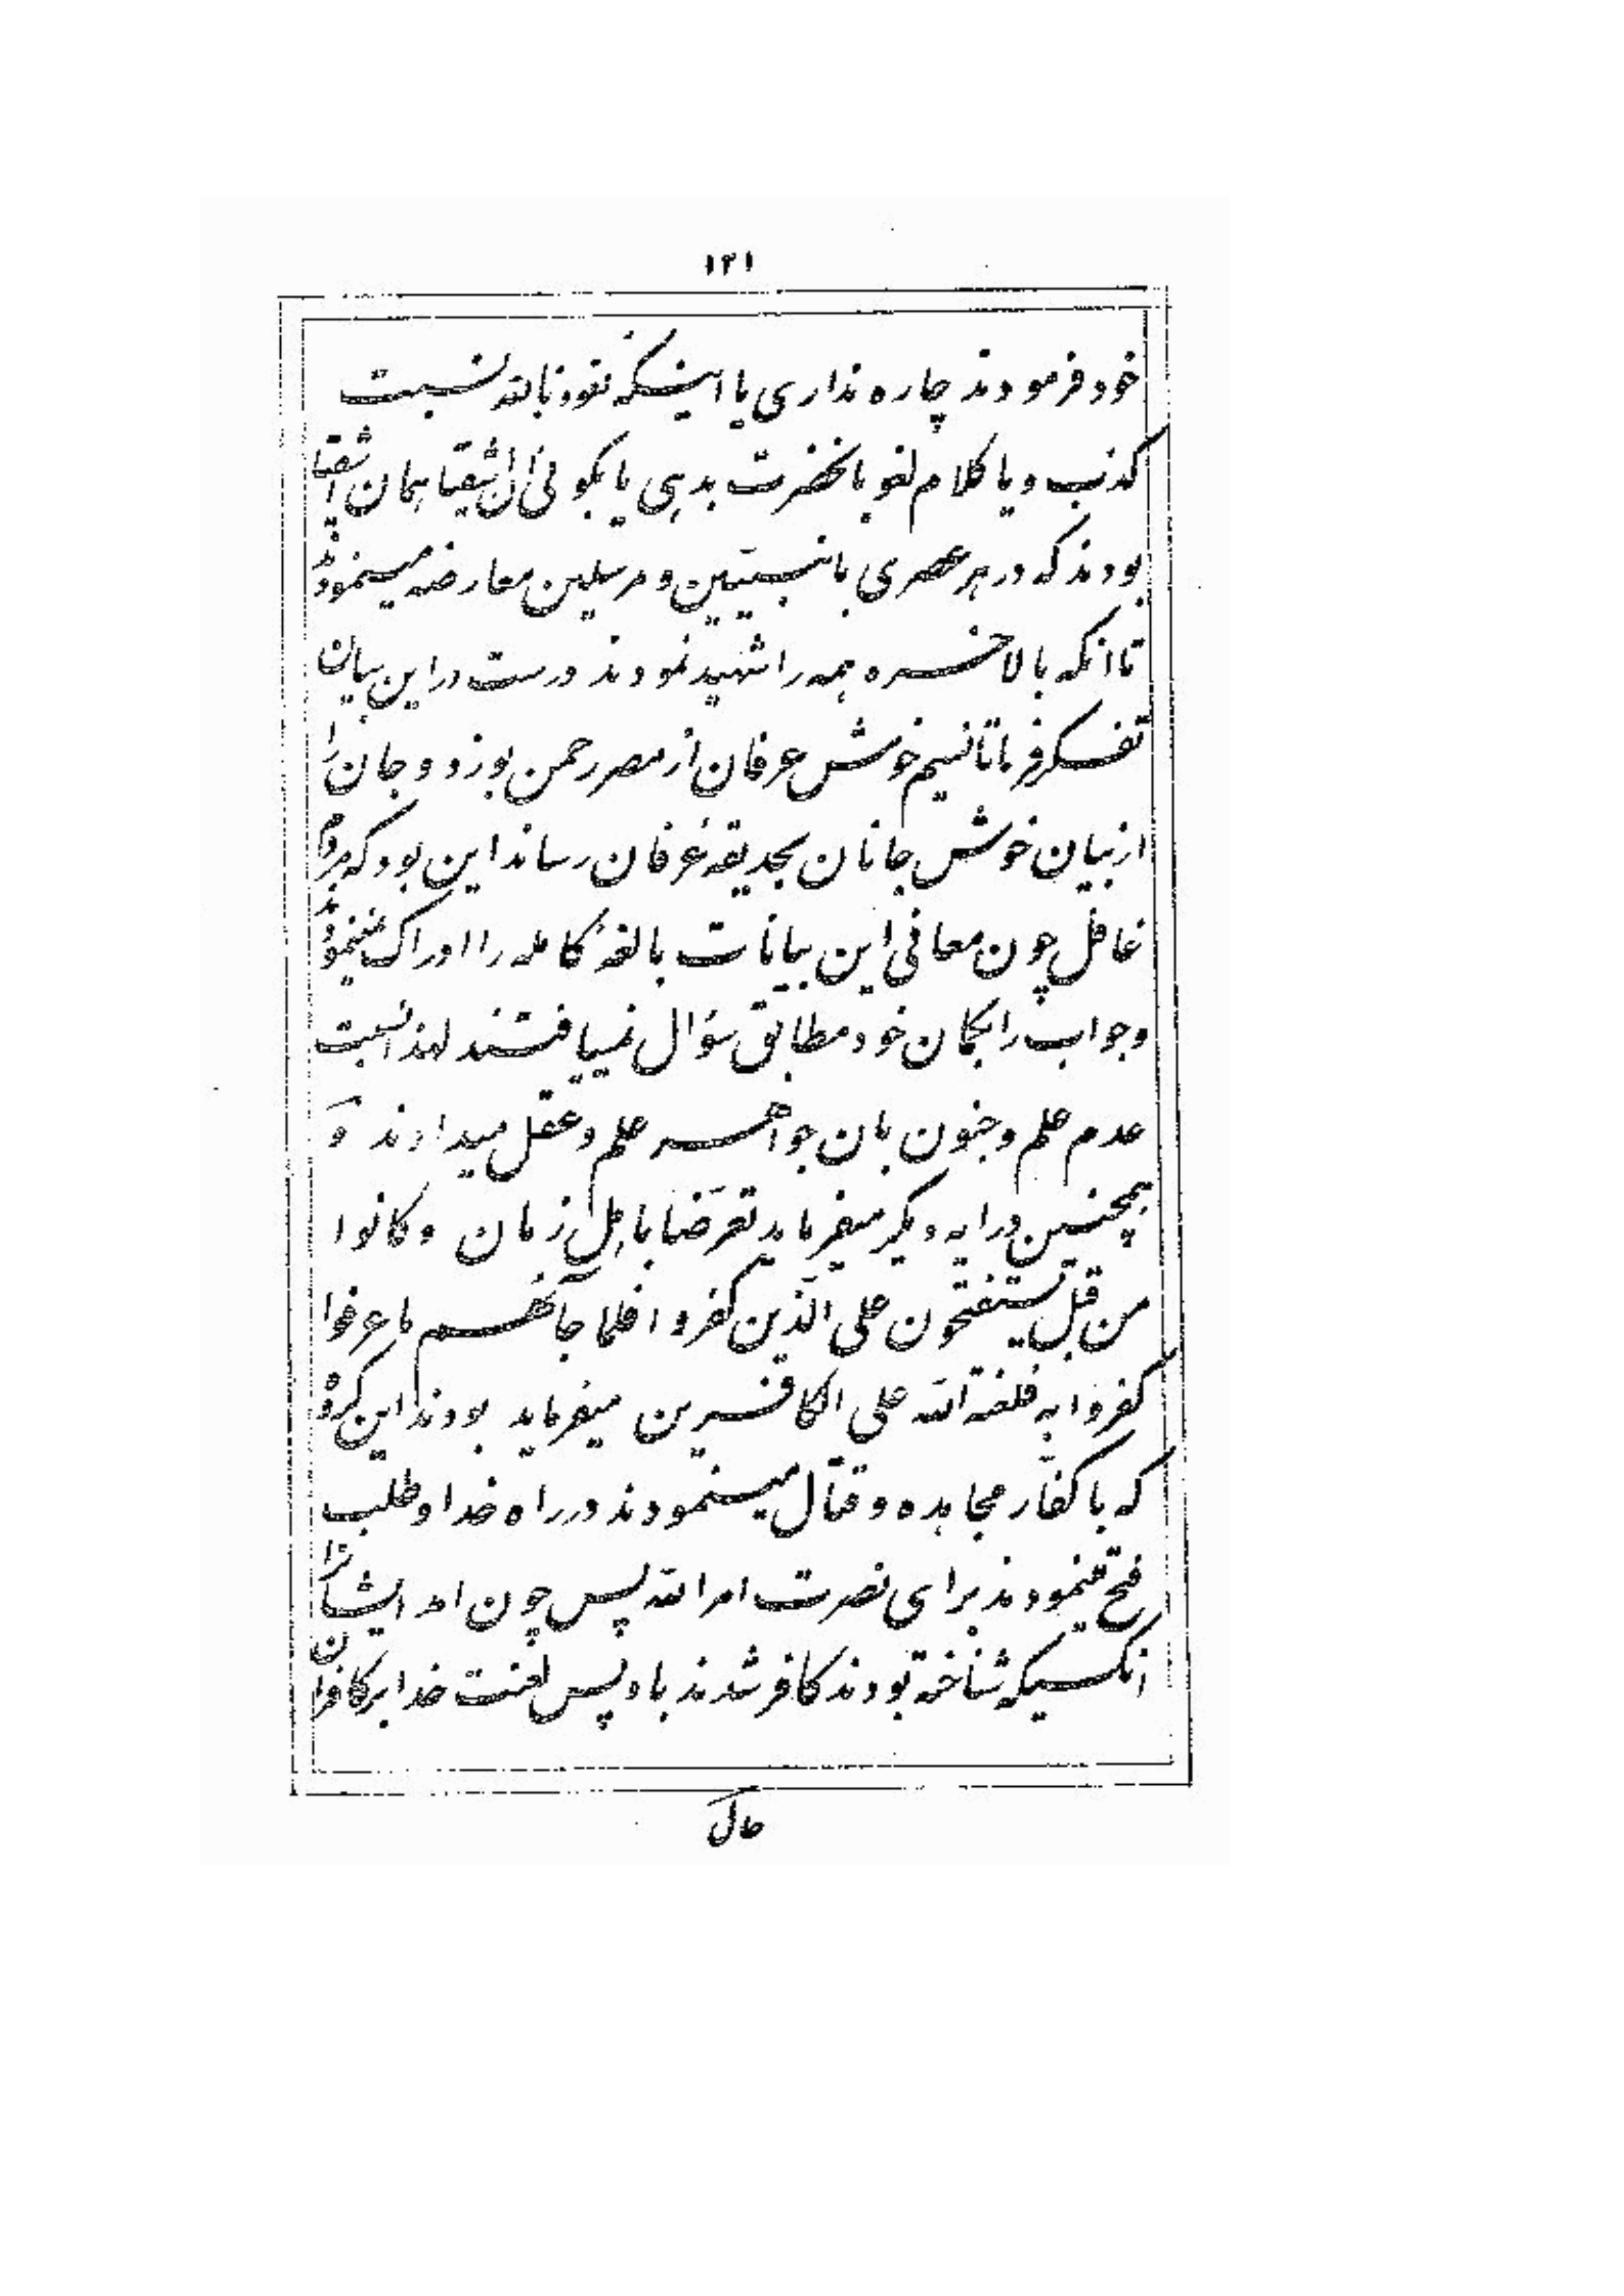 ۱۲۱
خود فرمودند چاره نداری یا اینکه نعوذ بالله نسبت
کذب و یا کلام لغو بانحضرت بدهی یا بگوئی آن اشقیا همان اشقیا
بودند که در هر عصری با نبیین و مرسلین معارضه مینمودند
تا انکه بالاخره همه را شهید نمودند درست در این بیان
تفکر فرما تا نسیم خوش عرفان از مصر رحمن بوزد و جان را
از بیان خوش جانان بحدیقه عرفان رساند این بود که مردم
غافل چون معانی این بیانات بالغه کامله را ادراک نمینمودند
و جواب را بگمان خود مطابق سؤال نمییافتند لهذا نسبت
عدم علم و جنون بان جواهر علم و عقل میدادند و
همچنین در ایه دیگر میفرماید تعرّضا باهل زمان و کانوا
من قبل یستفتحون علی الّذین کفروا فلمّا جآئهم ما عرفوا
کفروا به فلعنة الله علی الکافرین میفرماید بودند این گروه
که با کفّار مجاهده و قتال مینمودند در راه خدا و طلب
فتح مینمودند برای نصرت امر الله پس چون امد ایشانرا
انکسیکه شناخته بودند کافر شدند باو پس لعنت خدا بر کافران
حال